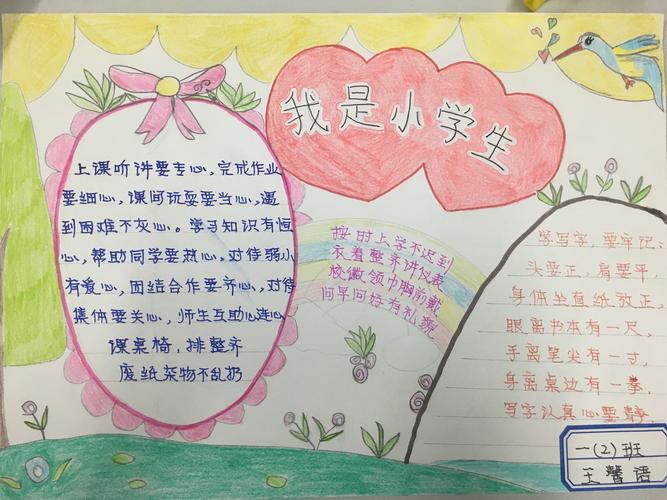 我是小学生
上课听讲要专心，完成作业
要细心，课间玩耍要当心，遇
到困难不灰心。学习知识有恒
心，帮助同学要热心，对待弱小
有爱心，团结合作要齐心，对待
集体要关心，师生互助心连心
课桌椅，排整齐
废纸杂物不乱扔
按时上学不迟到
衣着整齐讲仪表
校徽领巾胸前戴
问早问好有礼貌
学写字，要牢记，
头要正，肩要平，
身体坐直纸放正，
眼离书本有一尺，
手离笔尖有一寸，
身离桌边有一拳，
写字认真心要静，
一(2)班
王馨语